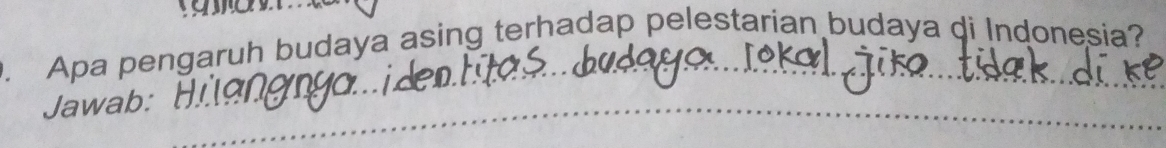 Apa pengaruh budaya asing terhadap pelestarian budaya di Indonesia?
Jawab: Hilangnya identitas budaya lokal jika tidak di ke